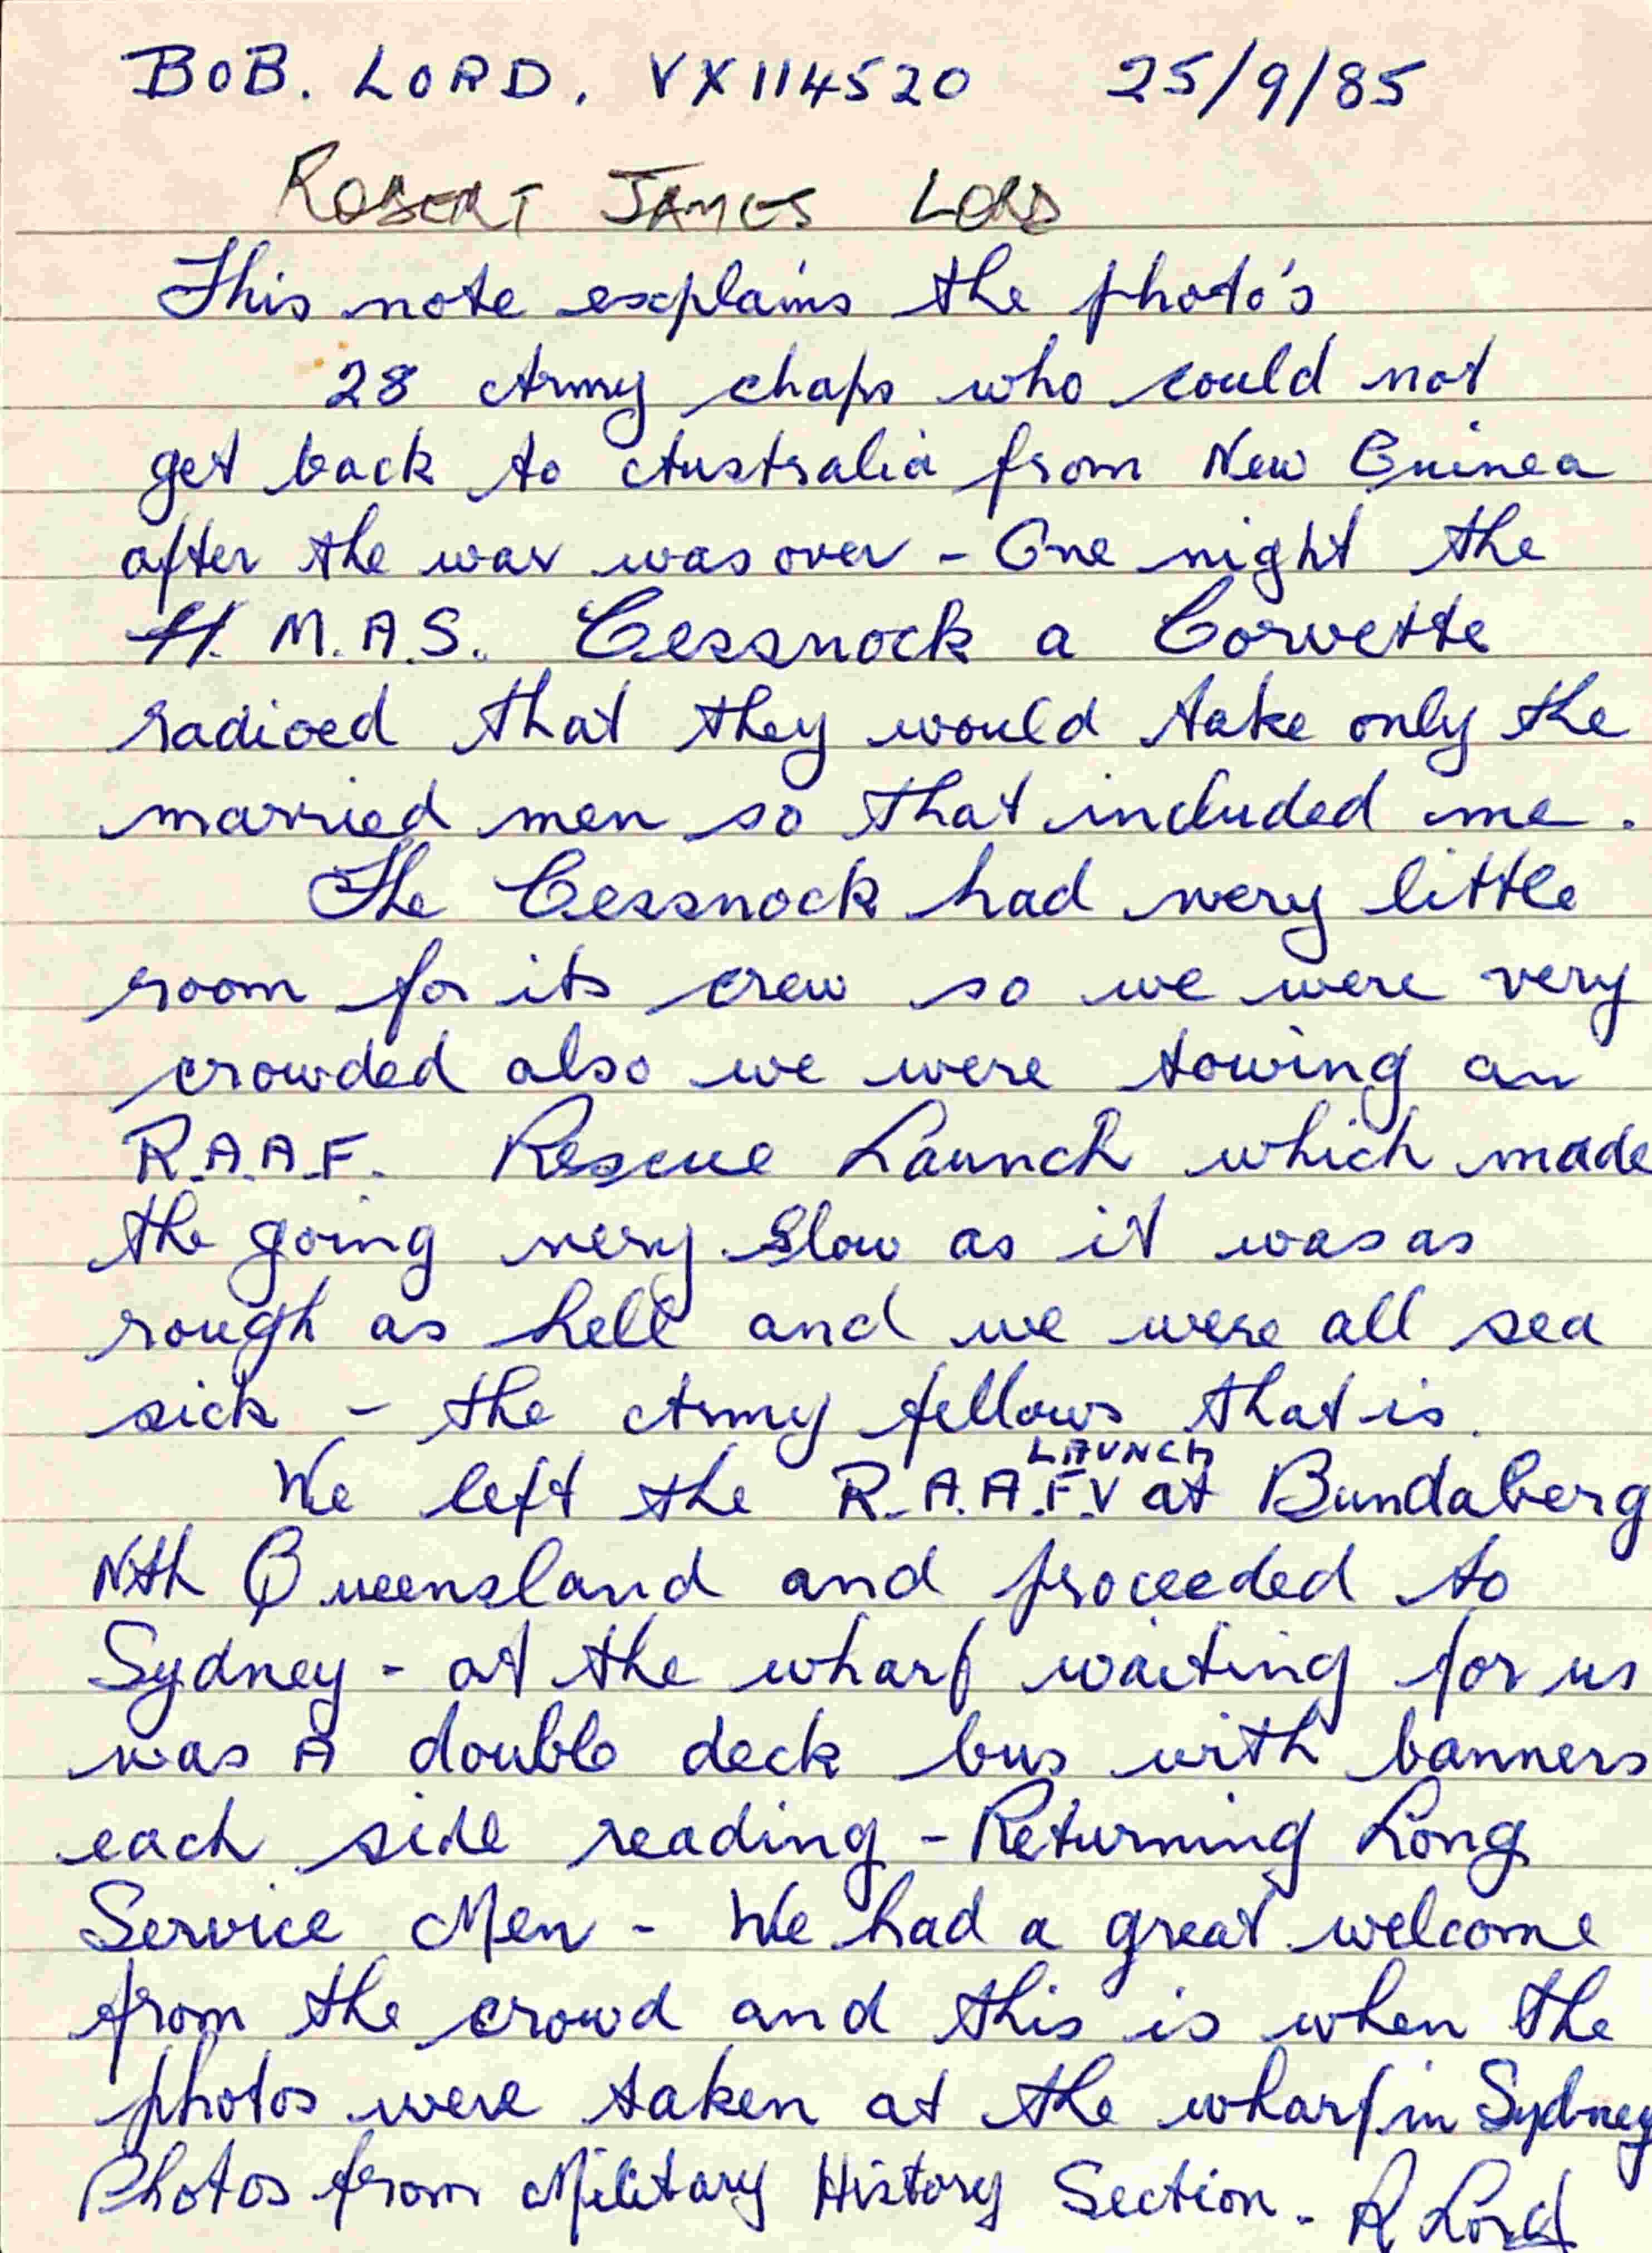 BOB. LORD. VX114520 25/9/85
ROBERT JAMES LORD
This note explains the photo's
28 Army chaps who could not
get back to Australia from New Guinea
after the war was over - One night the
H.M.A.S. Cessnock a Corvette
radioed that they would take only the
married men so that included me.
The Cessnock had very little
room for its crew so we were very
crowded also we were towing an
R.A.A.F. Rescue Launch which made
the going very slow as it was as
rough as hell and we were all sea
sick - the Army fellows that is.
LAUNCH
We left the R.A.A.F.V at Bundaberg
Nth Queensland and proceeded to
Sydney - at the wharf waiting for us
was A double deck bus with banners
each side reading - Returning Long
Service Men - We had a great welcome
from the crowd and this is when the
photos were taken at the wharf in Sydney
Photos from Military History Section. R Lord